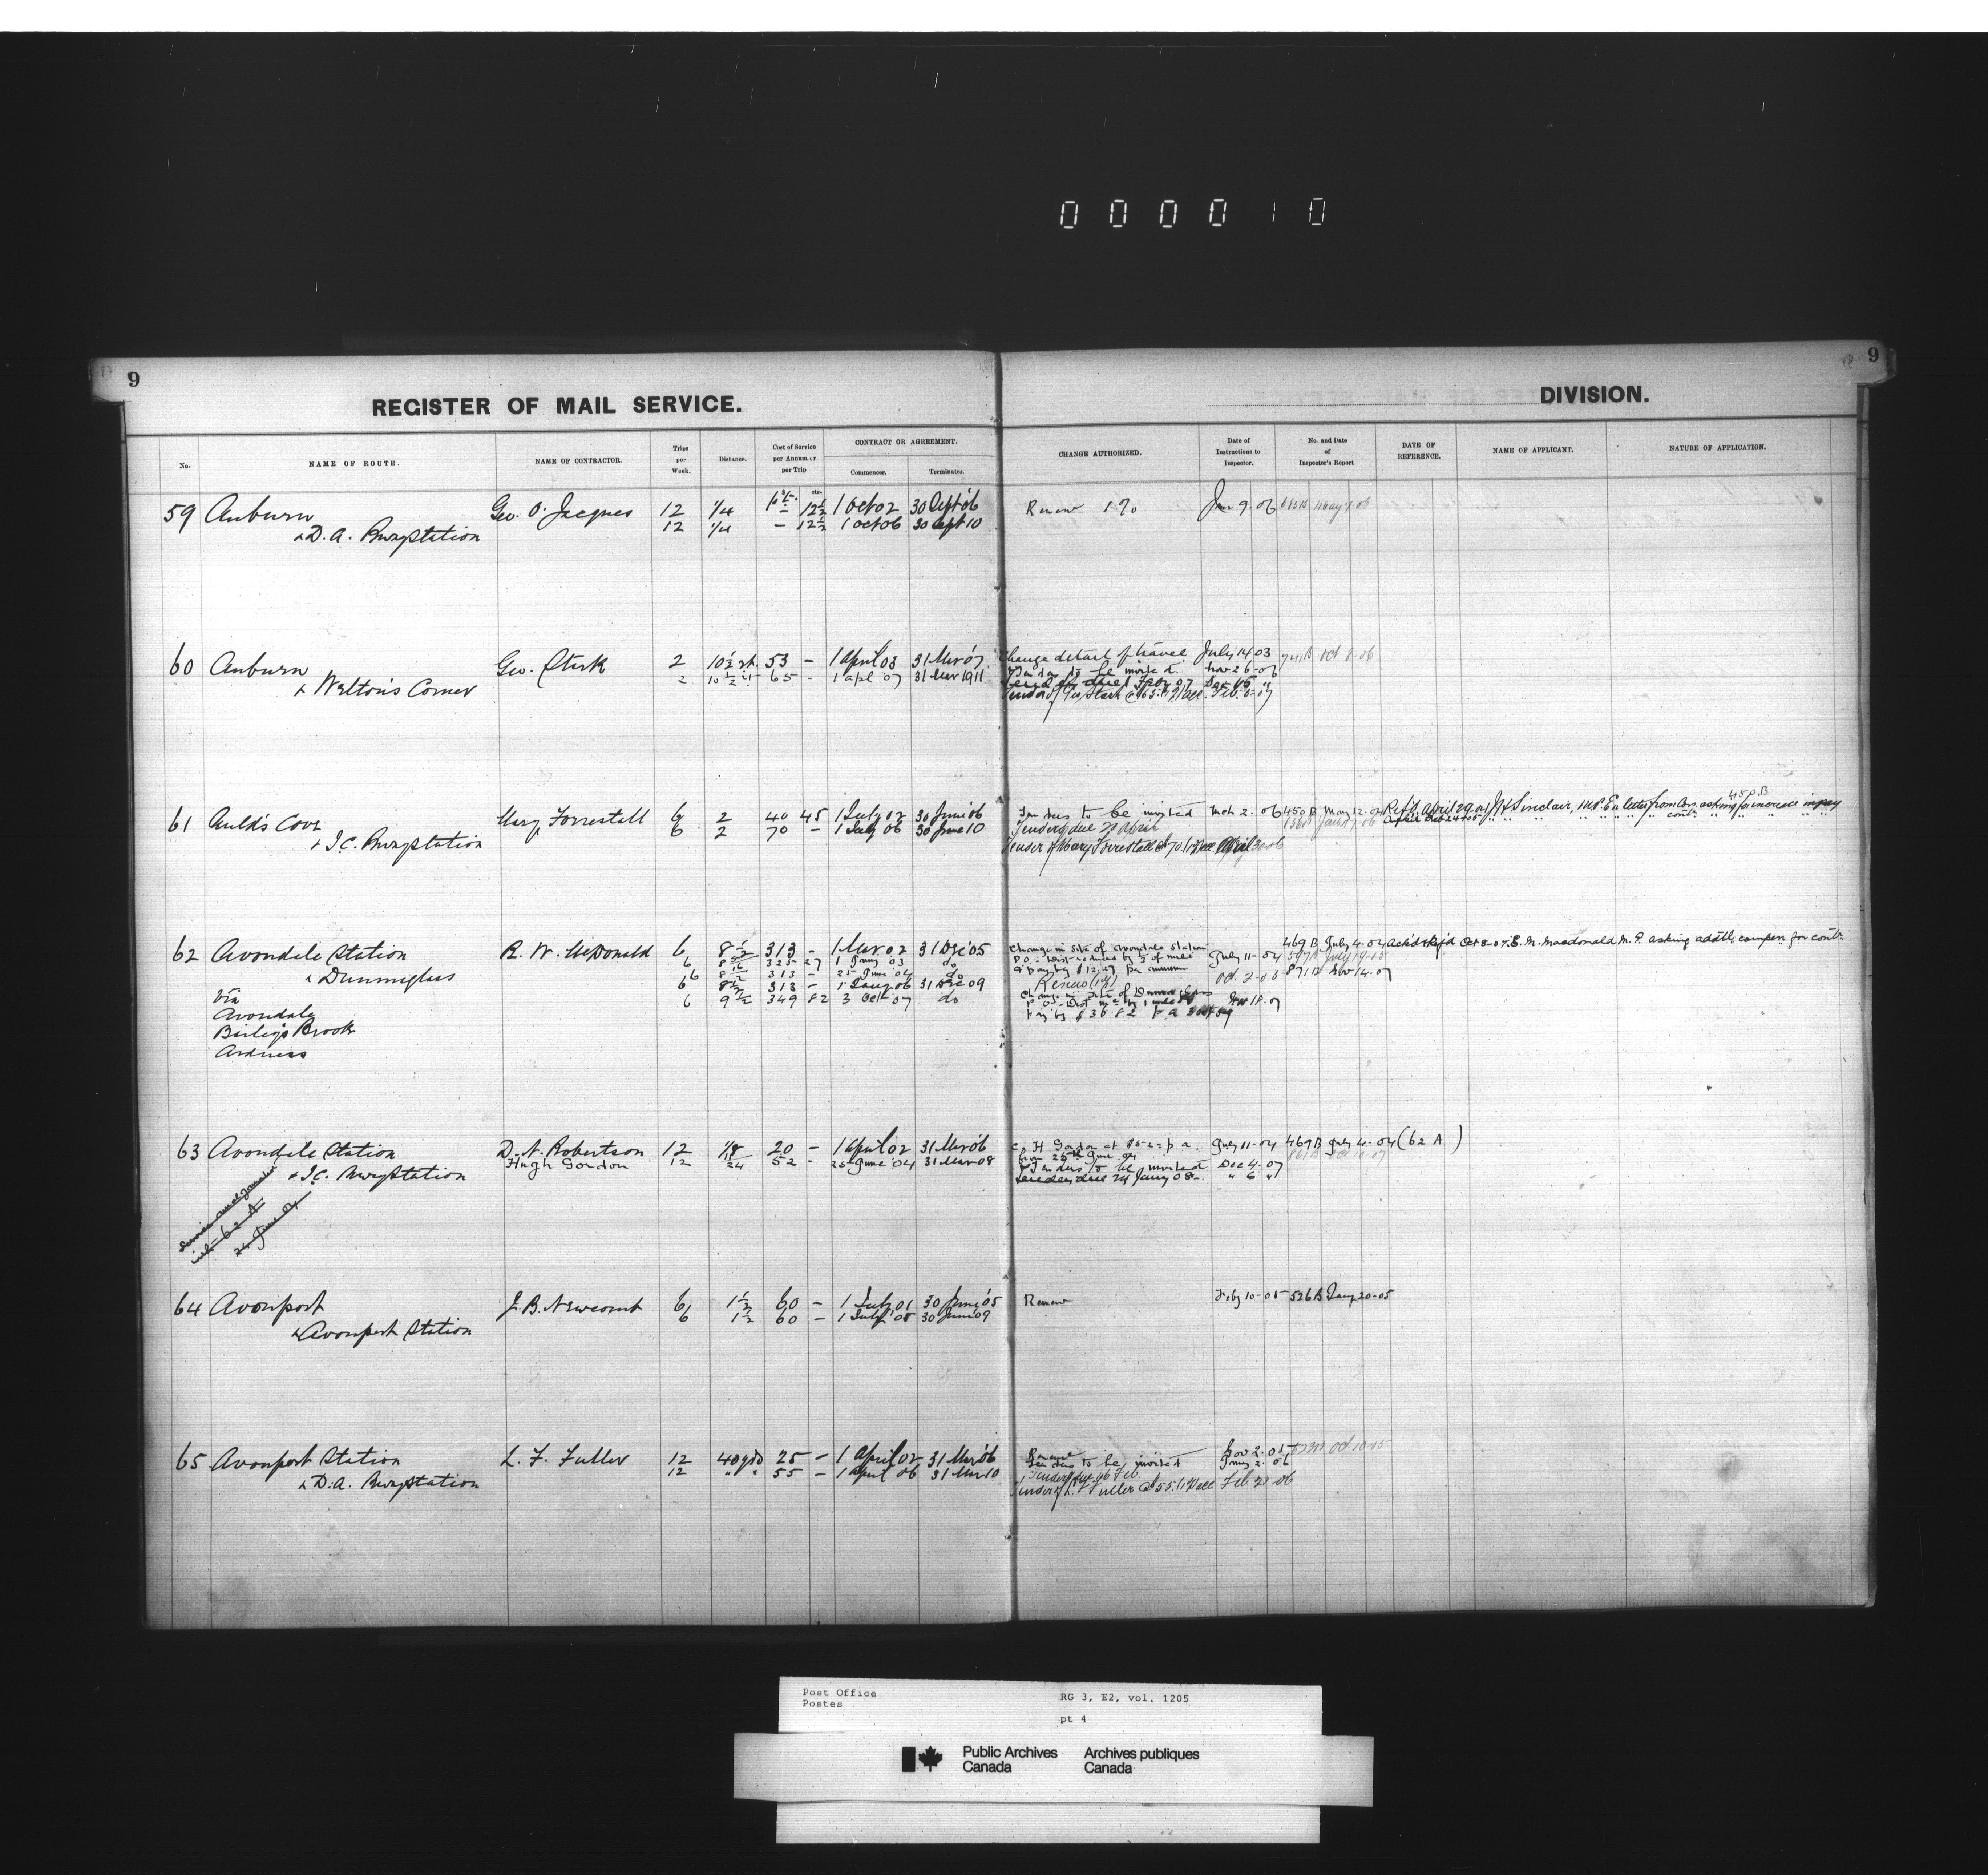 000010
9
REGISTER OF MAIL SERVICE.
DIVISION.
9
No.
NAME OF ROUTE.
NAME OF CONTRACTOR.
Trips per Week.
Distance.
Cost of Service per Annum or per Trip
CONTRACT OR AGREEMENT.
Commences.
Terminates.
CHANGE AUTHORIZED.
Date of Instructions to Inspector.
No. and Date of Inspector's Report.
DATE OF REFERENCE.
NAME OF APPLICANT.
NATURE OF APPLICATION.
59 Auburn Geo. O. Jacques 12 1/4 12½ 1 Oct 02 30 Sept 06 Renew 9. 06
& D. A. Rwy Station 12 1/4 - 12½ 1 Oct 06 30 Sept 10
60 Auburn Geo. Stirk 2 10½ 53 - 1 April 03 31 Mar 07 Change detail of travel July 14 03 Oct 8-06
& Welton's Corner 2 10½ 65 - 1 Apl 07 31 Mar 1911 Tenders to be invited Nov 26-06
61 Auld's Cove Mary Forrestall 6 2 40 45 1 July 02 30 June 06 Tenders to be invited Mch 2. 06 450 B May 12-04 Ref'd April 29-04 J.H. Sinclair, M.P. En letter from Con asking for increase in pay
& I.C. Rwy Station 6 2 70 - 1 July 06 30 June 10 Tenders due 20 April
Tender of Mary Forrestall @ 70 April 30-06
62 Avondale Station R. W. McDonald 6 8½ 313 - 1 Mar. 02 31 Dec '05 Change in site of Avondale Station July 11-04 469 B July 4-04 Ack'd & Rej'd Oct 8-07 E. M. Macdonald M.P. asking addtl. compen for contr.
& Dunmaglass 6 325 27 1 03 do P.O. - Dist reduced by
6 8½ 313 - 25 June 04 do pay by $12.27 per annum
6 8½ 313 - 1 Jany 06 31 Dec 09 Renew Oct 3-05 871 B Nov 14-07
via 6 9½ 349 82 3 Oct 07 do Change in site of Dunmaglass
Avondale pay by $36.82 p a Nov 18. 07
Bailey's Brook
Ardness
63 Avondale Station D. N. Robertson 12 1/8 20 - 1 April 02 31 Mar 06 H Gordon at $52 = p a. July 11-04 469 B July 4-04 (62 A)
& I.C. Rwy Station Hugh Gordon 12 52 - 25 June '04 31 Mar 08 from 25th June 04
Tenders to be invited Dec 4-07
Tenders due 24 Jany 08 - " 6 "
Service amalgamated
with 62 A
24 June 04
64 Avonport J. B. Newcomb 6 1½ 60 - 1 July 01 30 June '05 Renew Feby 10-05 526 B Jany 20-05
& Avonport Station 6 1½ 60 - 1 July 05 30 June 09
65 Avonport Station L. F. Fuller 12 40 yds 25 - 1 April 02 31 Mar 06 Renew Nov 2. 05 Oct 10-05
& D.A. Rwy Station 12 " " 55 - 1 April 06 31 Mar 10 Tenders to be invited Jany 2. 06
Tenders due 16 Feb.
Tender of L. F. Fuller @ 55 Feb 20-06
Post Office
Postes
RG 3, E2, vol. 1205
pt 4
Public Archives Canada
Archives publiques Canada